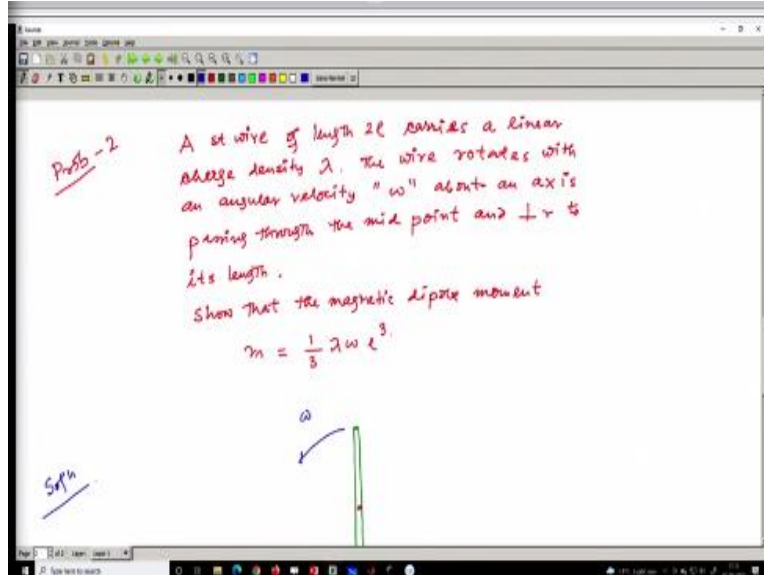 Prob-2
A st wire of length 2l carries a linear
charge density λ. The wire rotates with
an angular velocity "ω" about an axis
passing through the mid point and ⊥r to
its length.
Show that the magnetic dipole moment
m = 1/3 λ ω l^3.
ω
Solⁿ